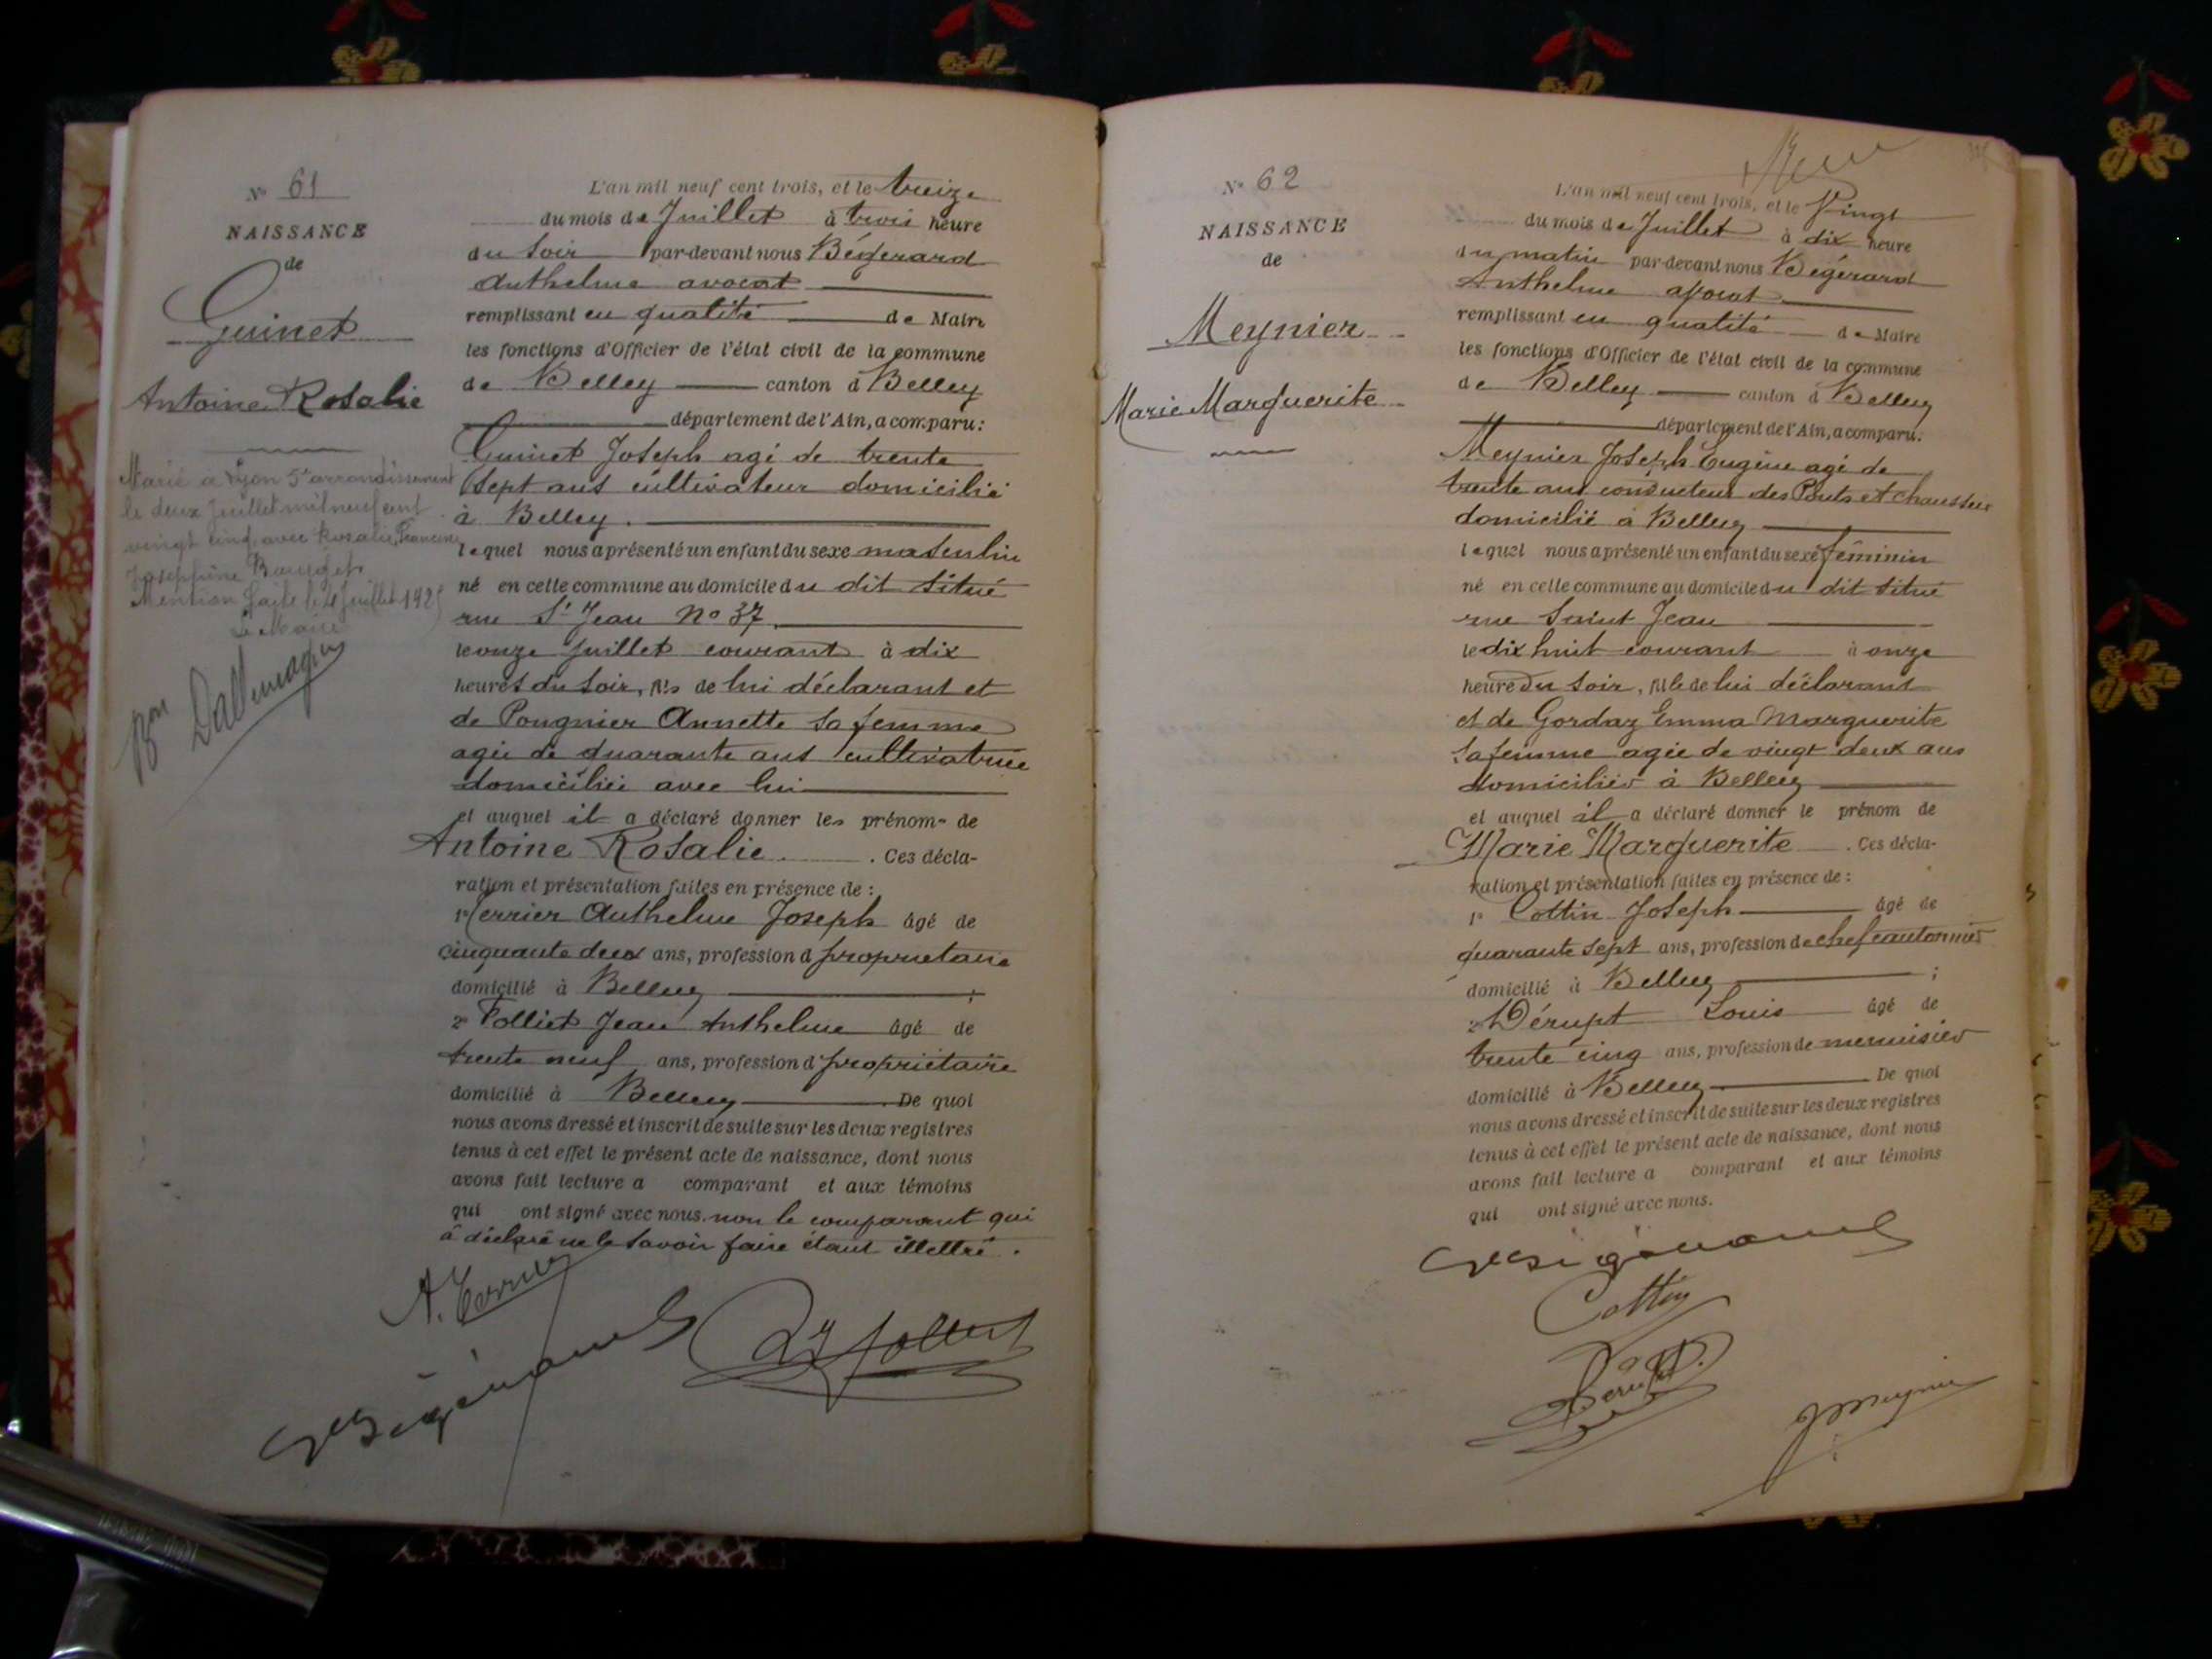 N° 61
NAISSANCE
de
Guinet
Antoine Rosalie
Marié à Lyon 5e arrondissement
le deux Juillet mil neuf cent
vingt cinq avec Rosalie, Francine
Joséphine
Mention faite le 4 Juillet 1925
Le Maire
Bon Dallemagne
L'an mil neuf cent trois, et le treize
du mois de Juillet à trois heure
du soir par-devant nous Bégerard
Anthelme avocat
remplissant en qualité de Maire
les fonctions d'Officier de l'état civil de la commune
de Belley canton d Belley
département de l'Ain, a comparu:
Guinet Joseph agé de trente
sept ans cultivateur domicilié
à Belley.
lequel nous a présenté un enfant du sexe masculin
né en cette commune au domicile du dit situé
rue St Jean No 37
le onze Juillet courant à dix
heures du soir, fils de lui déclarant et
de Pougnier Annette sa femme
agée de quarante ans cultivatrice
domiciliée avec lui
et auquel il a déclaré donner les prénoms de
Antoine Rosalie. Ces décla-
ration et présentation faites en présence de :
1° Terrier Anthelme Joseph âgé de
cinquante deux ans, profession d propriétaire
domicilié à Belley ;
2° Folliet Jean Anthelme âgé de
trente neuf ans, profession d propriétaire
domicilié à Belley. De quoi
nous avons dressé et inscrit de suite sur les deux registres
tenus à cet effet le présent acte de naissance, dont nous
avons fait lecture a comparant et aux témoins
qui ont signé avec nous, non le comparant qui
a déclaré ne le savoir faire étant illettré.
A. Terrier
Bégerard
Folliet
N° 62
NAISSANCE
de
Meynier
Marie Marguerite
L'an mil neuf cent trois, et le Vingt
du mois de Juillet à dix heure
du matin par-devant nous Bégérard
Anthelme avocat
remplissant en qualité de Maire
les fonctions d'Officier de l'état civil de la commune
de Belley canton d Belley
département de l'Ain, a comparu:
Meynier Joseph Eugène agé de
trente ans conducteur des Ponts et chaussées
domicilié à Belley
lequel nous a présenté un enfant du sexe féminin
né en cette commune au domicile du dit situé
rue Saint Jean
le dix huit courant à onze
heure du soir, fille de lui déclarant
et de Gordaz Emma Marguerite
sa femme agée de vingt deux ans
domiciliés à Belley
et auquel il a déclaré donner le prénom de
Marie Marguerite. Ces décla-
ration et présentation faites en présence de :
1° Cottin Joseph âgé de
quarante sept ans, profession de chef cantonnier
domicilié à Belley ;
2° Dérupt Louis âgé de
trente cinq ans, profession de menuisier
domicilié à Belley. De quoi
nous avons dressé et inscrit de suite sur les deux registres
tenus à cet effet le présent acte de naissance, dont nous
avons fait lecture a comparant et aux témoins
qui ont signé avec nous.
Bégerard
Cottin
Derupt
J Meynier